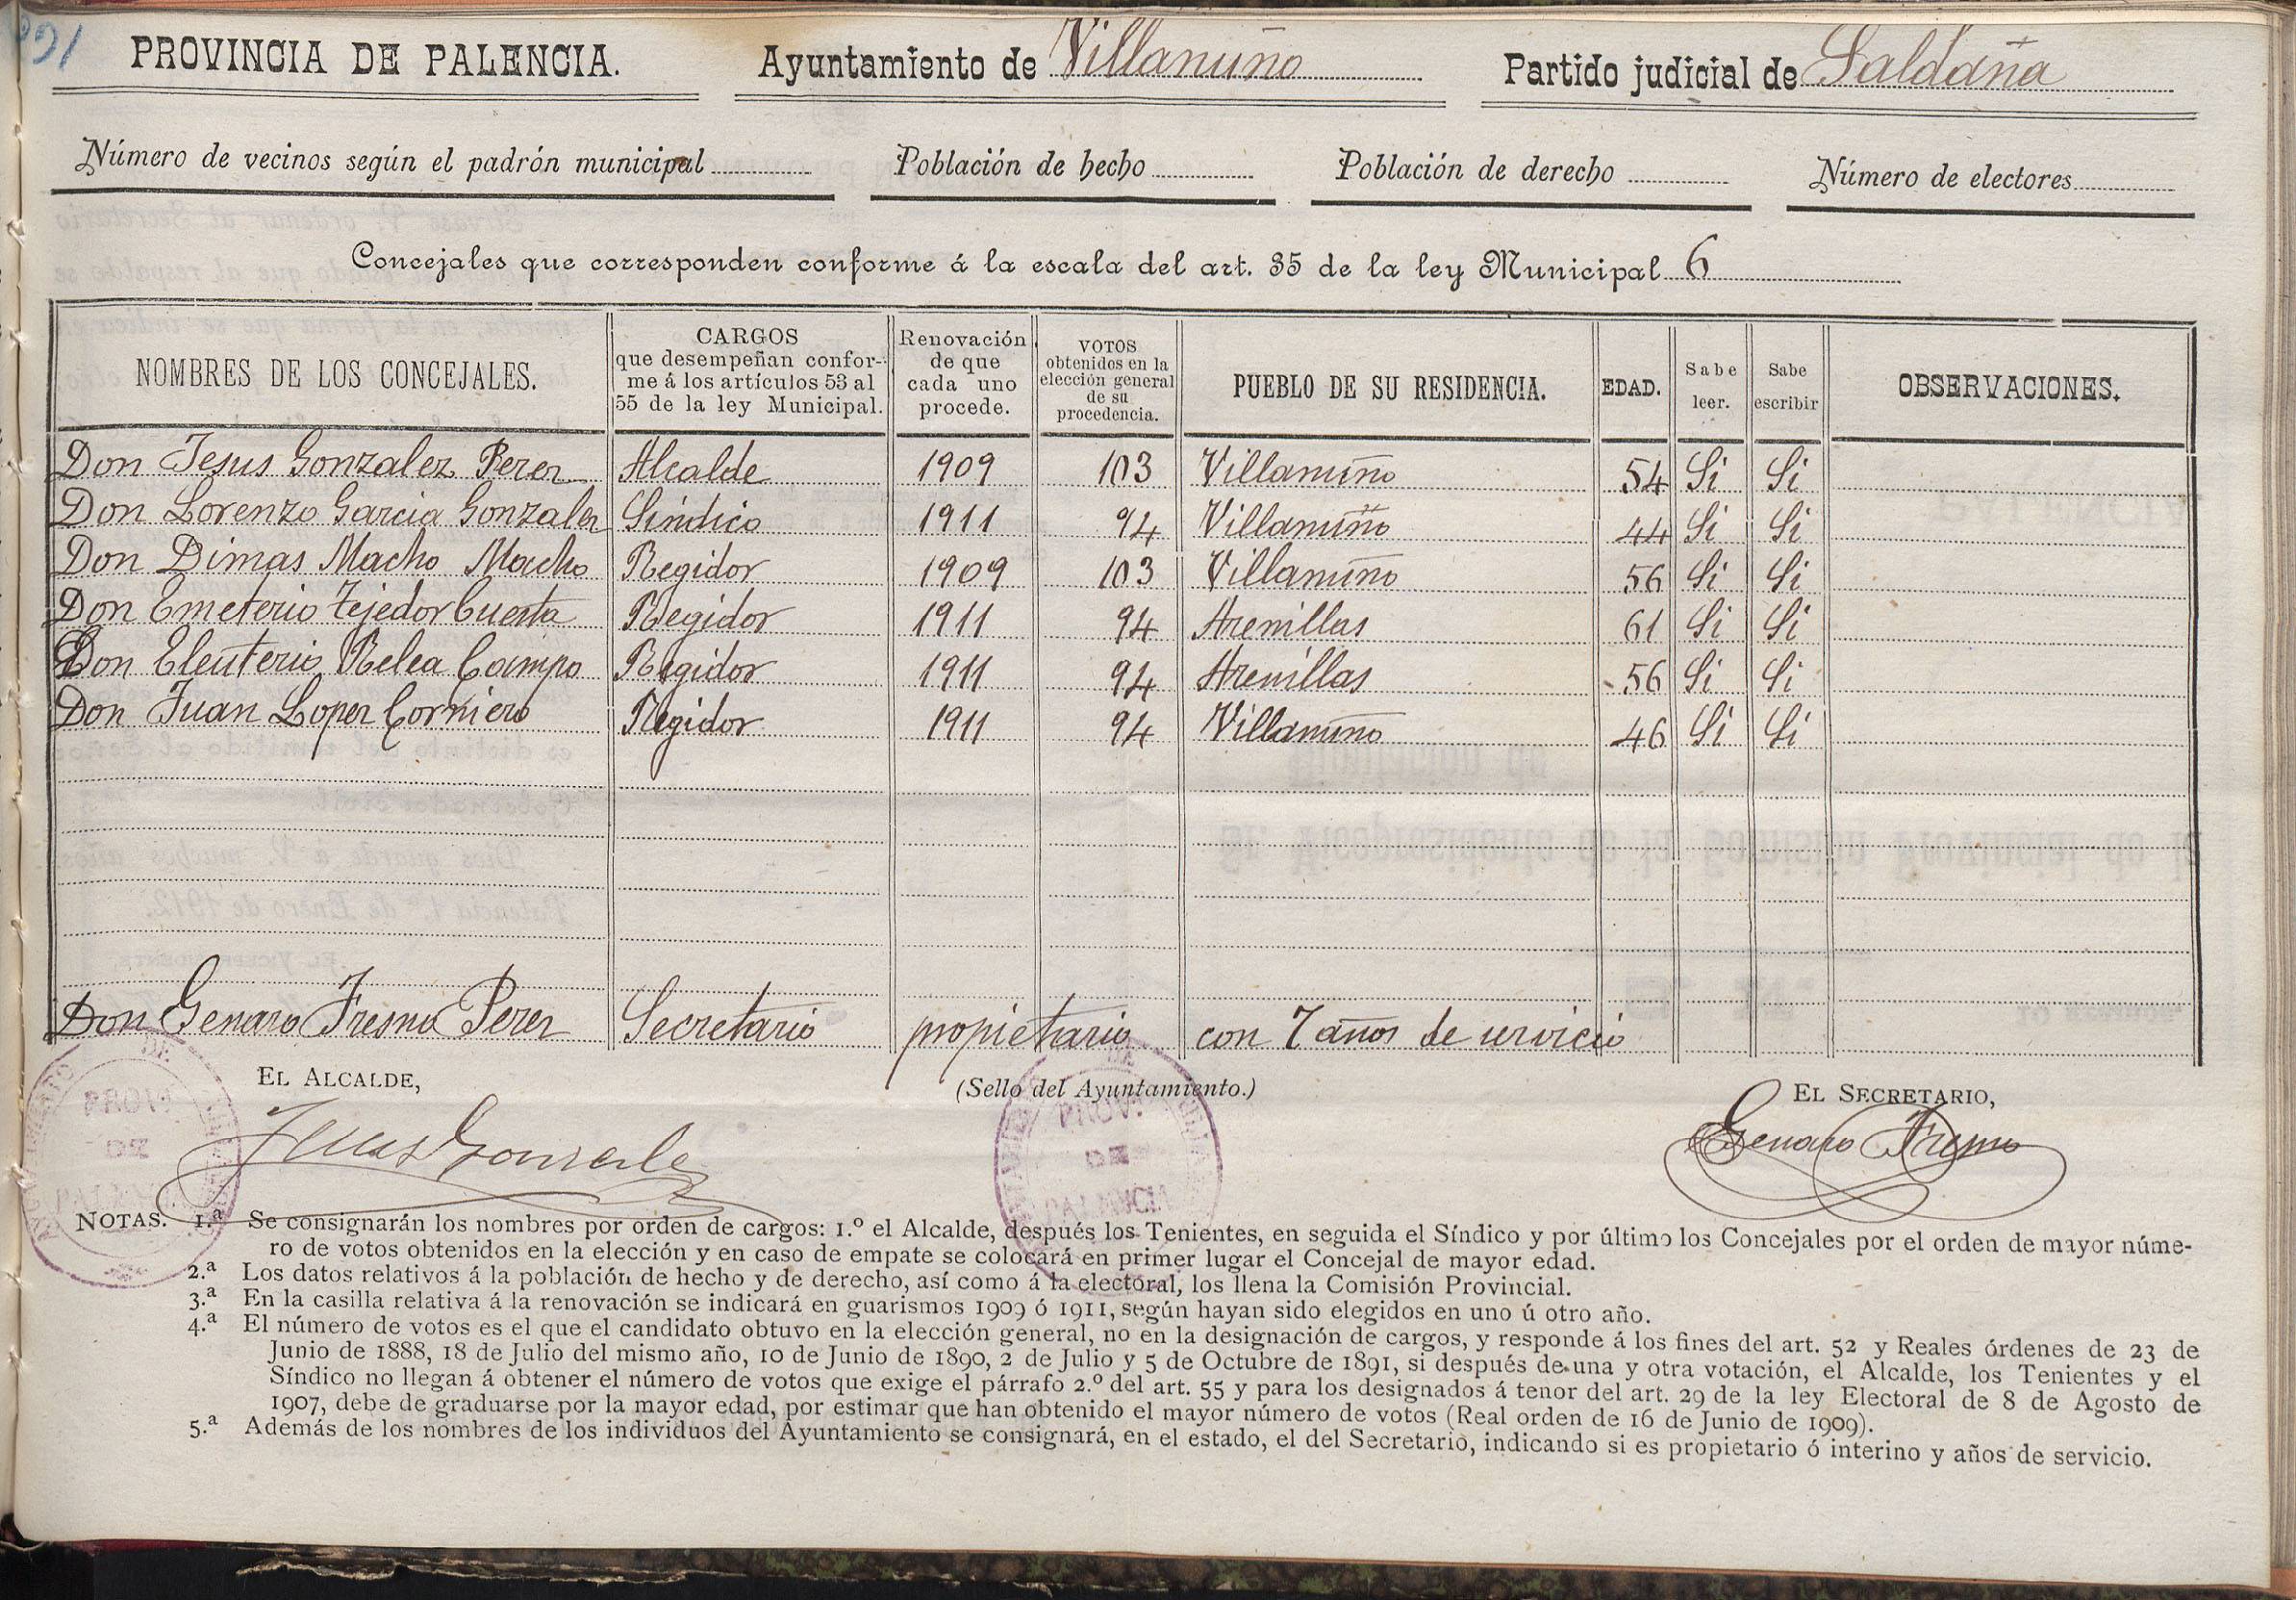 PROVINCIA DE PALENCIA. Ayuntamiento de Villanuño Partido judicial de Saldaña
Número de vecinos según el padrón municipal Población de hecho Población de derecho Número de electores
Concejales que corresponden conforme á la escala del art. 35 de la ley Municipal 6
NOMBRES DE LOS CONCEJALES. CARGOS que desempeñan conforme á los artículos 53 al 55 de la ley Municipal. Renovación de que cada uno procede. VOTOS obtenidos en la elección general de su procedencia. PUEBLO DE SU RESIDENCIA. EDAD. Sabe leer. Sabe escribir OBSERVACIONES.
Don Jesus Gonzalez Perez Alcalde 1909 103 Villanuño 54 Si Si
Don Lorenzo Garcia Gonzalez Sindico 1911 94 Villanuño 44 Si Si
Don Dimas Macho Macho Regidor 1909 103 Villanuño 56 Si Si
Don Emeterio Tejedor Cuesta Regidor 1911 94 Arenillas 61 Si Si
Don Eleuterio Relea Campo Regidor 1911 94 Arenillas 56 Si Si
Don Juan Lopez Corniero Regidor 1911 94 Villanuño 46 Si Si
Don Genaro Fresno Perez Secretario propietario con 7 años de servicio
EL ALCALDE, (Sello del Ayuntamiento.) EL SECRETARIO,
Jesus Gonzalez Genaro Fresno
PROV. DE PALENCIA
NOTAS. 1.ª Se consignarán los nombres por orden de cargos: 1.º el Alcalde, después los Tenientes, en seguida el Síndico y por último los Concejales por el orden de mayor núme-
ro de votos obtenidos en la elección y en caso de empate se colocará en primer lugar el Concejal de mayor edad.
2.ª Los datos relativos á la población de hecho y de derecho, así como á la electoral, los llena la Comisión Provincial.
3.ª En la casilla relativa á la renovación se indicará en guarismos 1909 ó 1911, según hayan sido elegidos en uno ú otro año.
4.ª El número de votos es el que el candidato obtuvo en la elección general, no en la designación de cargos, y responde á los fines del art. 52 y Reales órdenes de 23 de
Junio de 1888, 18 de Julio del mismo año, 10 de Junio de 1890, 2 de Julio y 5 de Octubre de 1891, si después de una y otra votación, el Alcalde, los Tenientes y el
Síndico no llegan á obtener el número de votos que exige el párrafo 2.º del art. 55 y para los designados á tenor del art. 29 de la ley Electoral de 8 de Agosto de
1907, debe de graduarse por la mayor edad, por estimar que han obtenido el mayor número de votos (Real orden de 16 de Junio de 1909).
5.ª Además de los nombres de los individuos del Ayuntamiento se consignará, en el estado, el del Secretario, indicando si es propietario ó interino y años de servicio.